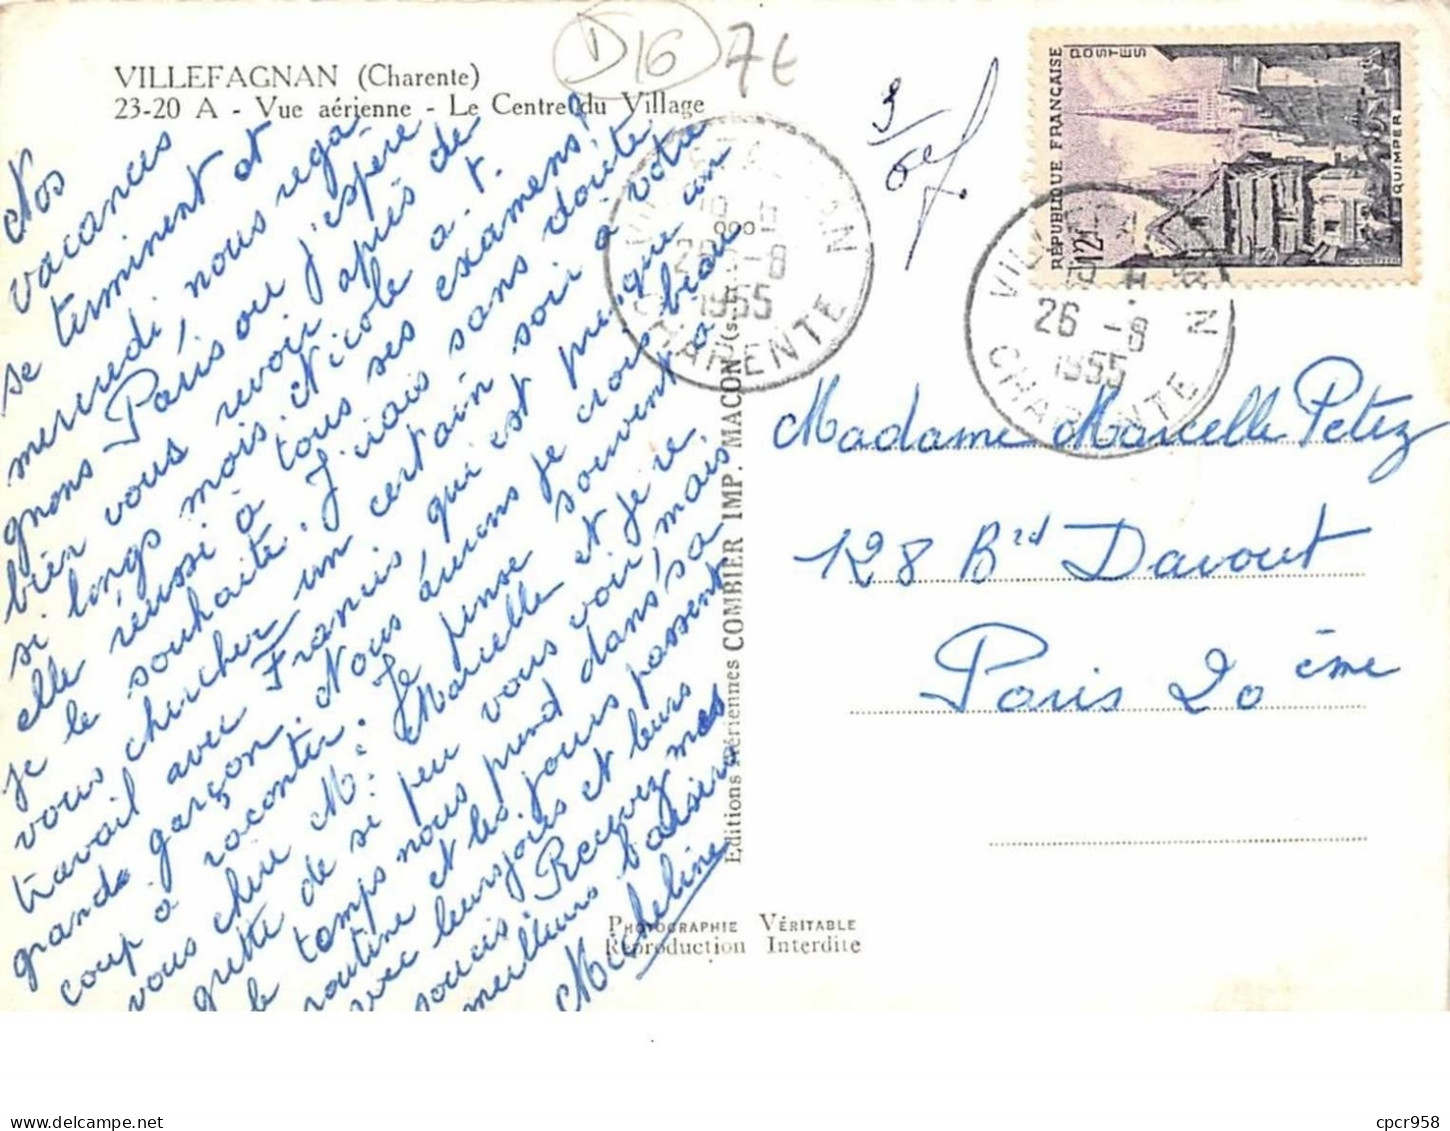 D16 7t
VILLEFAGNAN (Charente)
23-20 A - Vue aérienne - Le Centre du Village
Nos
vacances
se terminent et
mercredi, nous rega
gnons Paris ou j'espère
bien vous revoir après de
si longs mois. Nicole a-t-
elle réussi à tous ses examens!
je le souhaite. J'irais sans doute
vous chercher un certain soir à votre
travail avec Francis qui est presque un
grand garçon. Nous aurons je crois beau
coup à raconter. Je pense souvent à
vous chère Me Marcelle et je re
grette de si peu vous voir, mais
le temps nous prend dans sa
routine et les jours passent
avec leurs joies et leurs
soucis Recevez mes
meilleurs baisers
Micheline
VILLEFAGNAN
26-8
1955
CHARENTE
Editions Aériennes COMBIER IMP. MACON
PHOTOGRAPHIE VÉRITABLE
Reproduction Interdite
RÉPUBLIQUE FRANÇAISE
POSTES
12f
QUIMPER
VILLEFAGNAN
26-8
1955
CHARENTE
Madame Marcelle Petez
128 Brd Davout
Paris 20 ème
cpcr958